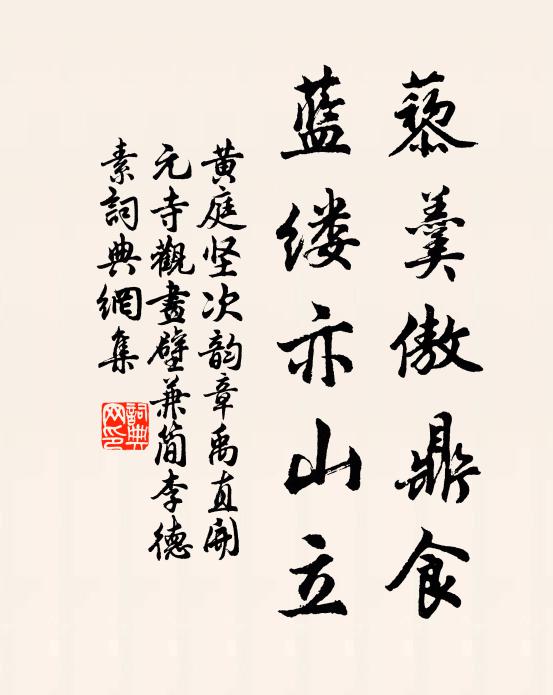 藜羹傲鼎食
蓝缕亦山立
黄庭坚次韵章禹直開
元寺觀畫壁兼简李德
素詞典網集
詞典网印